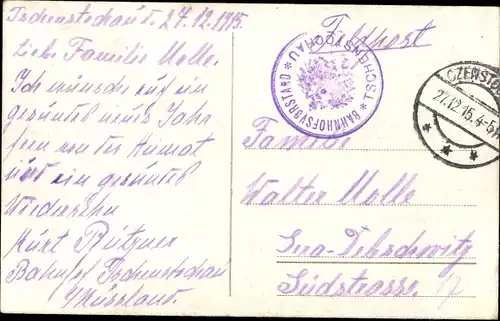 Tschenstochau d. 27.12.1915.
Liebe Familie Molle.
Ich wünsche auf ein
gesundes neues Jahr
fern von der Heimat
und ein gesundes
Wiedersehn
Kurt
Bahnhof Tschenstochau
i/Russland.
Feldpost
BAHNHOFSVORSTAND * TSCHENSTOCHAU *
CZENSTOCH
27.12.15.4-5
Familie
Walter Molle
Gera-Debschwitz
Südstrasse 17